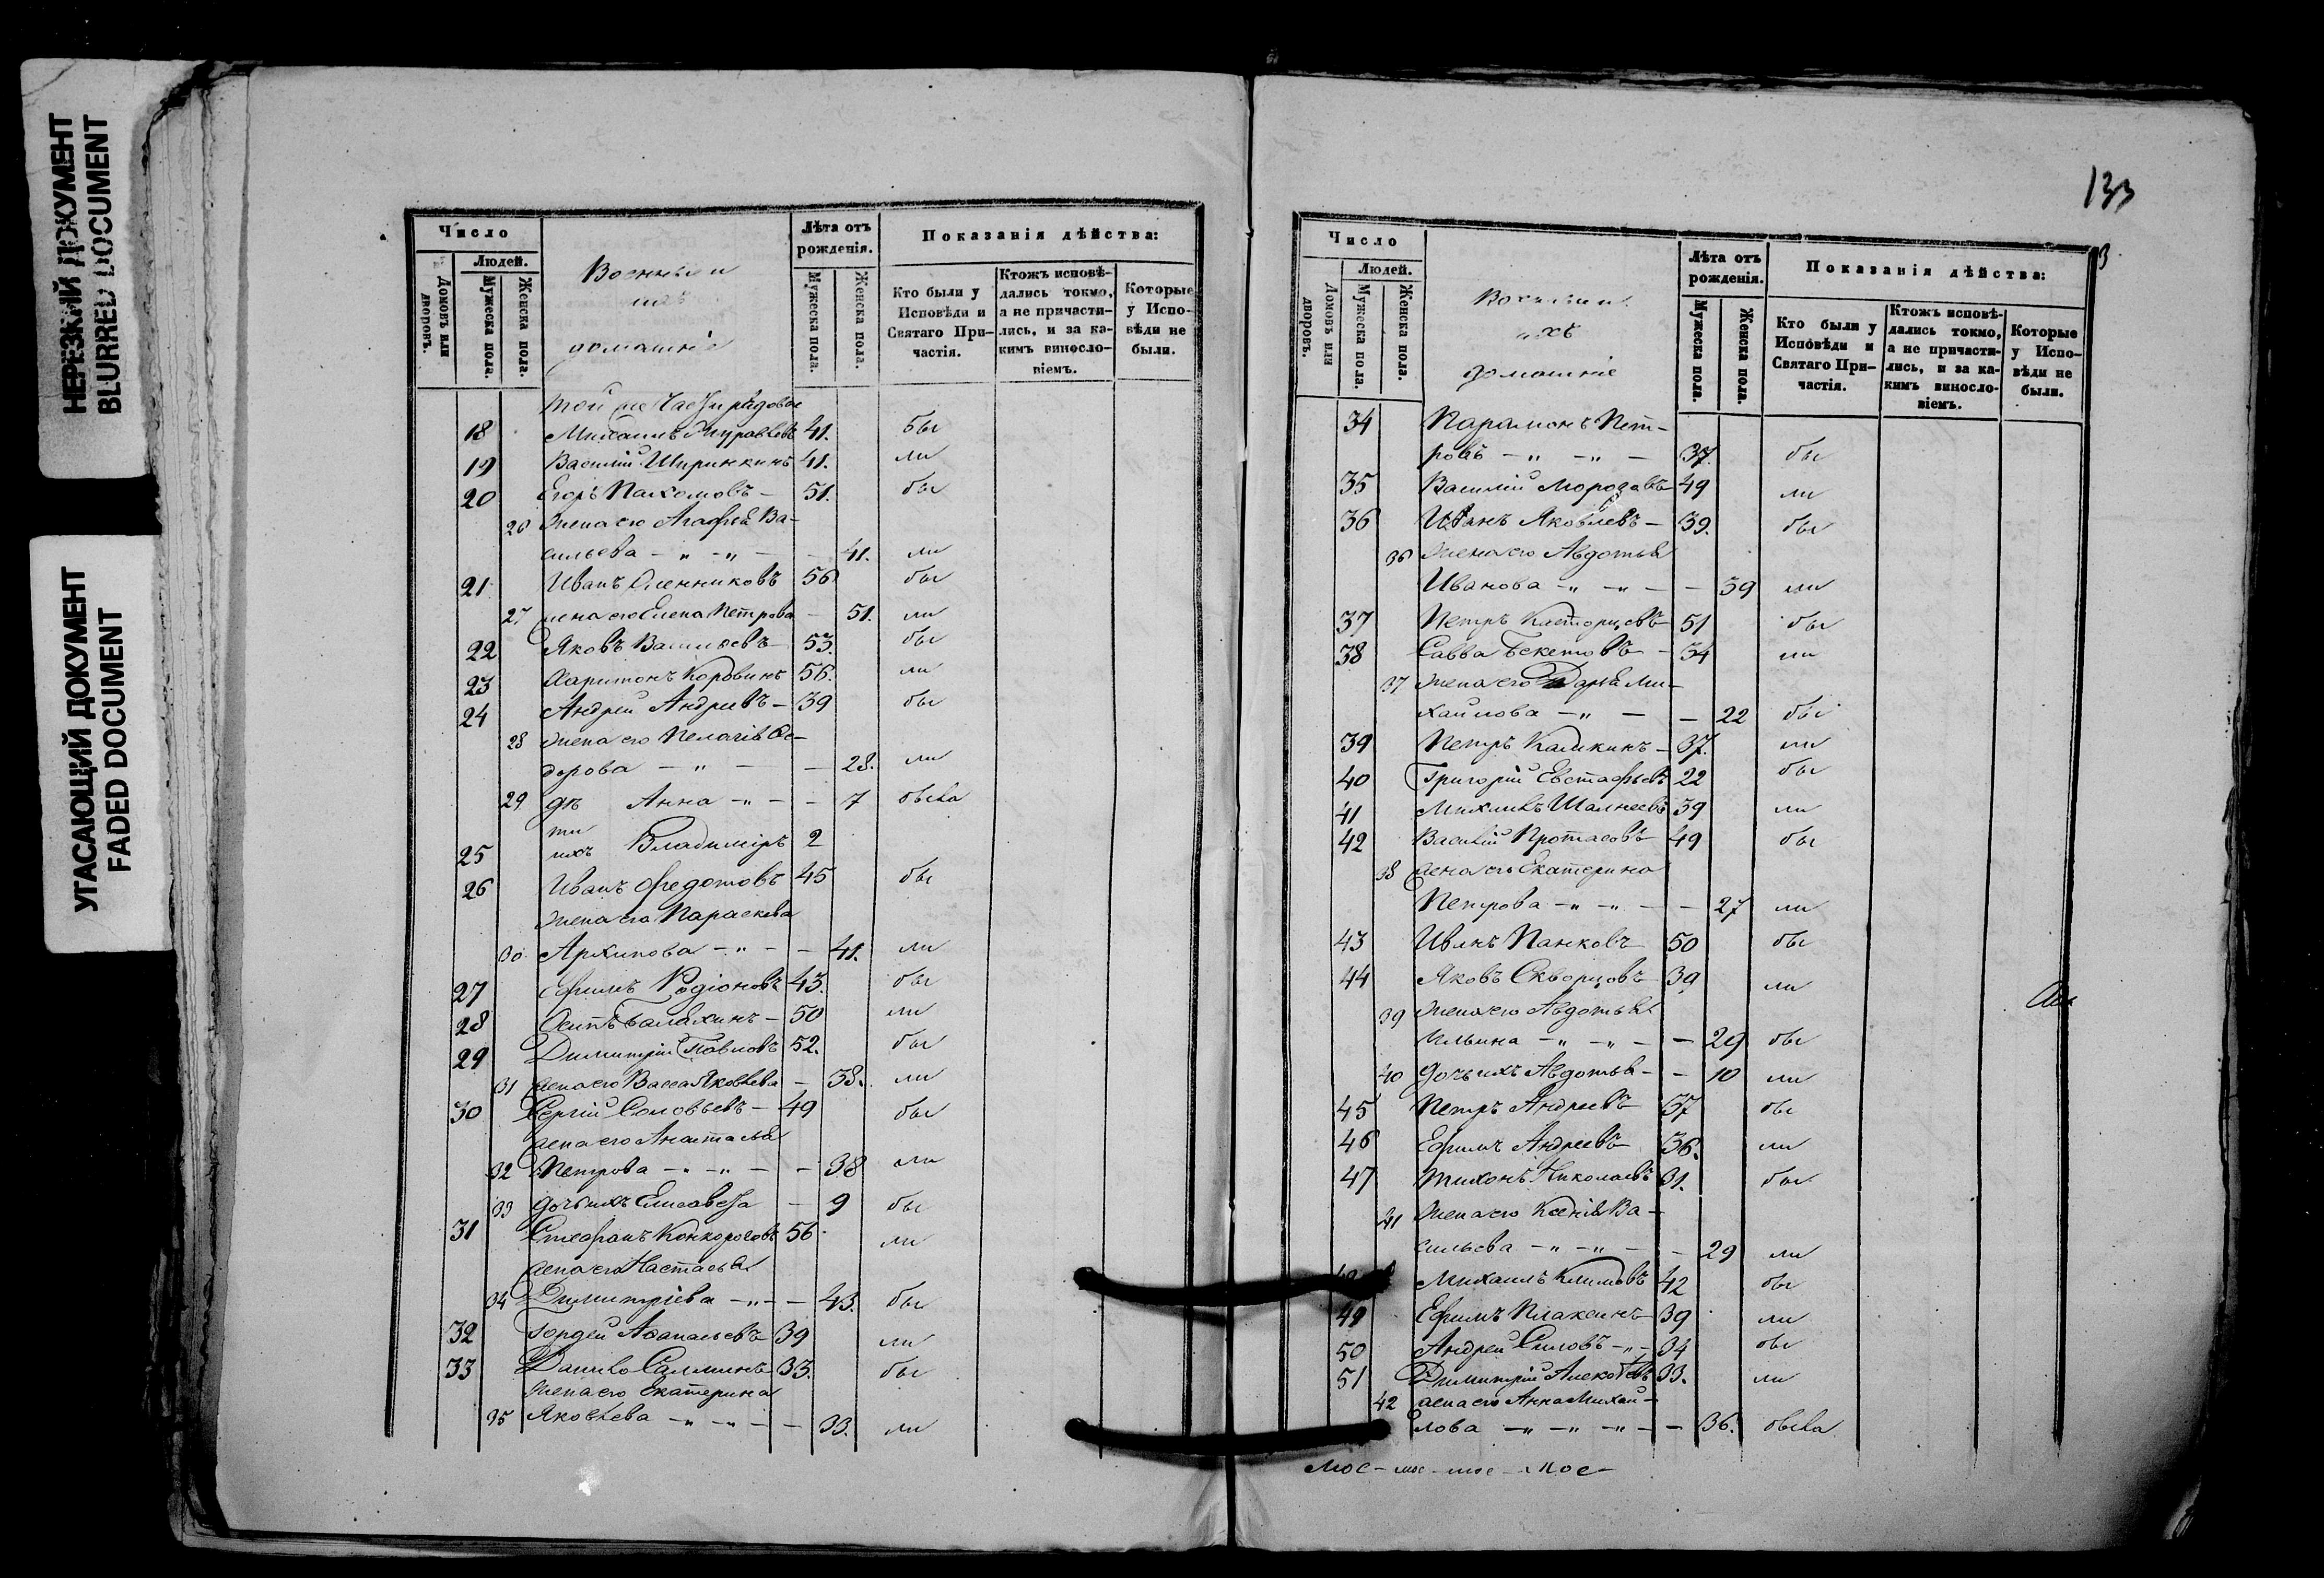 НЕРЕЗКИЙ ДОКУМЕНТ
BLURRED DOCUMENT
УГАСАЮЩИЙ ДОКУМЕНТ
FADED DOCUMENT
Число
Людей.
Домовъ или дворовъ.
Мужеска пола.
Женска пола.
Военныи и
ихъ
домашніе
Лѣта отъ рожденія.
Мужеска пола.
Женска пола.
Показанія дѣйства:
Кто были у Исповѣди и Святаго Причастія.
Ктожъ исповѣдались токмо, а не причастились, и за какимъ винословіемъ.
Которые у Исповѣди не были.
той же Части рядовые
18 Михаилъ Журавлевъ 41. бы
19 Василій Ширинкинъ 41. ли
20 Егоръ Пахомовъ - 51. бы
26 Жена его Агафья Ва-
сильева - " - " - - 41. ли
21 Иванъ Оленниковъ 56 бы
27 жена его Елена Петрова - 51. ли
22 Яковъ Васильевъ 53. бы
23 Харитонъ Коровинъ 56. ли
24 Андрей Андреевъ - 39 бы
28 Жена его Пелагія Ѳе-
дорова - " - - 28. ли
29 дѣ Анна - " - - 7 обѣва
ти
25 ихъ Владиміръ 2
26 Иванъ Федотовъ 45 бы
Жена его Параскева
30 Архипова - " - - 41. ли
27 Ефимъ Родіоновъ 43. бы
28 Осипъ Балахинъ - 50 ли
29 Димитрій Павловъ 52. бы
31 жена его Васса Яковлева - 38. ли
30 Сергій Соловьевъ - 49 бы
жена его Анастасья
32 Петрова - " - " - - 38 ли
33 дочь ихъ Елисавета - 9 бы
31 Стефанъ 56 ли
жена его Настасья
34 Димитріева - " - - 43. бы
32 Гордей Аѳанасьевъ 39 ли
33 Данило 33. бы
Жена его Екатерина
35 Яковлева - " - " - - 33. ли
133
Число
Людей.
Домовъ или дворовъ.
Мужеска пола.
Женска пола.
Военныи и
ихъ
домашніе
Лѣта отъ рожденія.
Мужеска пола.
Женска пола.
Показанія дѣйства:
Кто были у Исповѣди и Святаго Причастія.
Ктожъ исповѣдались токмо, а не причастились, и за какимъ винословіемъ.
Которые у Исповѣди не были.
34 Парамонъ Пет-
ровъ - " - " - 37. бы
35 Василій Морозовъ 49 ли
36 Иванъ Яковлевъ - 39. бы
36 Жена его Авдотья
Иванова - " - " - - 39 ли
37 Петръ 51 бы
38 Савва Бекетовъ - 34 ли
37 Жена его Дарья Ми-
хайлова - " - - 22 бы
39 Петръ Калкинъ - 37. ли
40 Григорій Евстафьевъ 22 бы
41 39 ли
42 Василій Протасовъ 49 бы
38 жена его Екатерина
Петрова - " - " - - 27 ли
43 Иванъ Панковъ 50 бы
44 Яковъ Скворцовъ 39 ли
39 Жена его Авдотья
Ильина - " - " - - 29 бы
40 дочь ихъ Авдотья - - 10 ли
45 Петръ Андреевъ 37 бы
46 Ефимъ Андреевъ 36. ли
47 Тихонъ Николаевъ 31. бы
41 Жена его Ксенія Ва-
сильева - " - " - - 29 ли
Михаилъ Климовъ 42 бы
49 Ефимъ Плаксинъ 39 ли
50 Андрей Силовъ - " - 34 бы
51 Димитрій 33. ли
42 жена его Анна Михай-
лова - " - " - " - - 36. обѣва